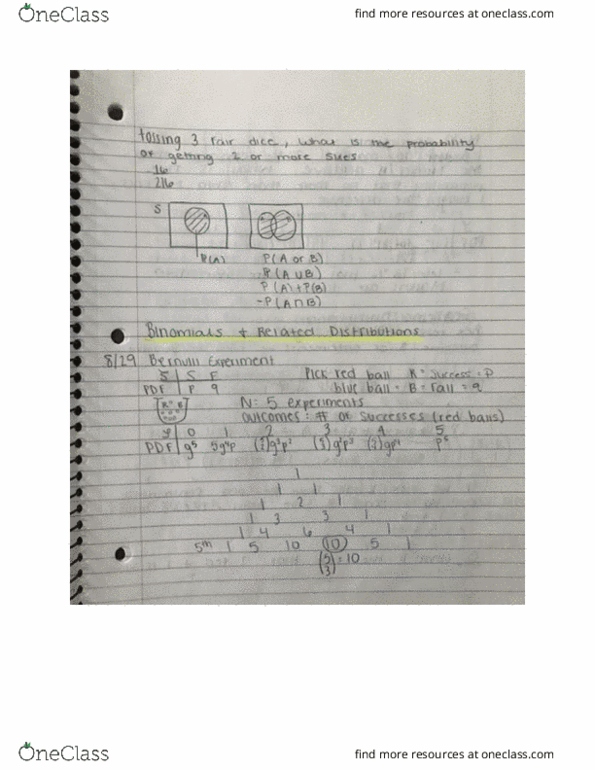 OneClass
find more resources at oneclass.com
tossing 3 fair dice, what is the probability
of getting 2 or more
16
216
S
P(A)
P(A or B)
P(A∪B)
P(A)+P(B)
-P(A∩B)
Binomials + Related Distributions
8/29 Bernulli Experiment
S F
PDF P q
Pick red ball R = success = P
blue ball = B = fail = q
N = 5 experiments
outcomes: # of successes (red balls)
y 0 1 2 3 4 5
PDF q⁵ 5q⁴p
p⁵
1
1 1
1 2 1
1 3 3 1
1 4 6 4 1
5th 1 5 10 10 5 1
(5 3) = 10
OneClass
find more resources at oneclass.com